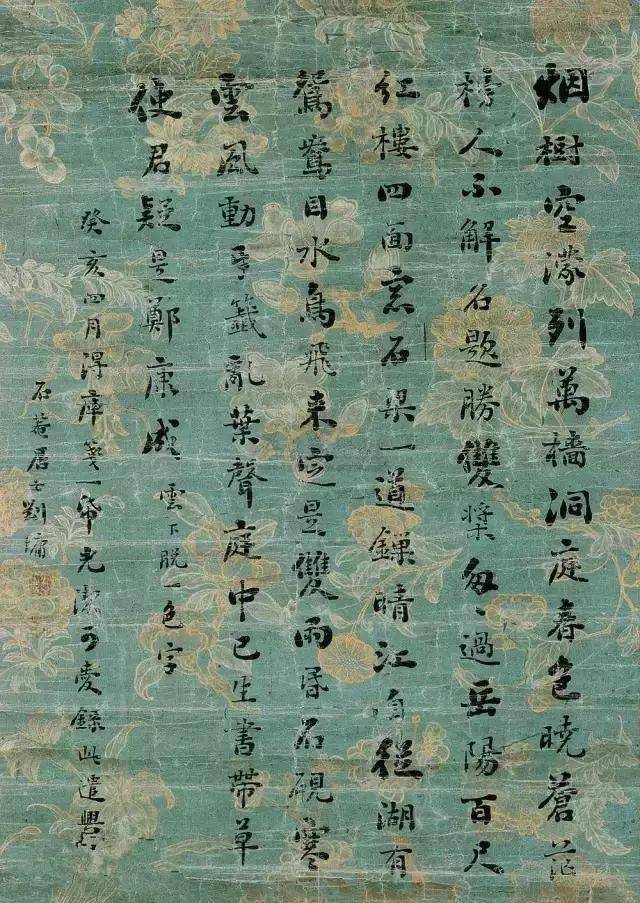 烟樹空濛列萬檣洞庭春色曉蒼茫
榜人不解名題勝雙槳匆〻過岳陽百尺
紅樓四面窓石梁一道鏁晴江自從湖有
鴛鴦目水鳥飛来定是雙雨昏石硯寒
雲風動牙籤亂葉聲庭中已生書帶草
使君疑是鄭康成 雲下脱一色字
癸亥四月得庫箋一帋光潔可愛錄此遣興
石菴居士劉墉